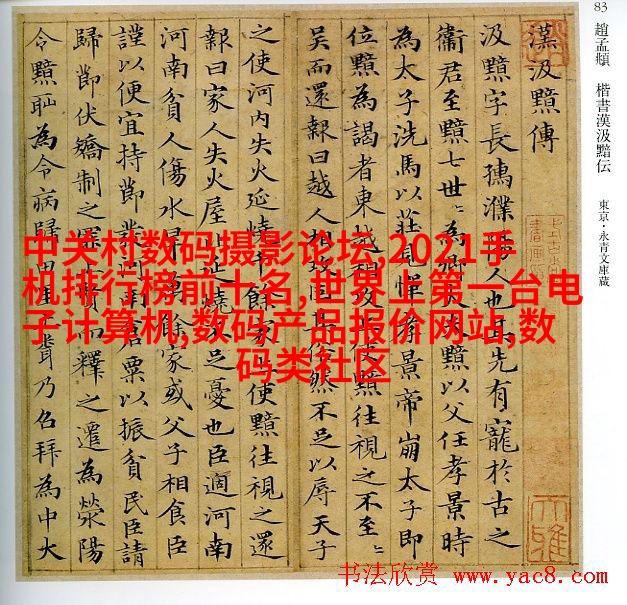 83
趙孟頫 楷書漢汲黯伝 東京·永青文庫蔵
漢汲黯傳
汲黯字長孺濮陽人也其先有寵於古之
衛君至黯七世〻為卿大夫黯以父任孝景時
為太子洗馬以莊見憚孝景帝崩太子即
位黯為謁者東越相攻上使黯往視之不至〻
吳而還報曰越人相攻固其俗然不足以辱天子
之使河內失火延燒千餘家上使黯往視之還
報曰家人失火屋比延燒不足憂也臣適河南
河南貧人傷水旱萬餘家或父子相食臣
謹以便宜持節發河南倉粟以振貧民臣請
歸節伏矯制之罪上賢而釋之遷為滎陽
令黯恥為令病歸田里上聞乃召拜為中大
中关村数码摄影论坛,2021手
机排行榜前十名,世界上第一台电
子计算机,数码产品报价网站,数
码类社区
书法欣赏 www.yac8.com